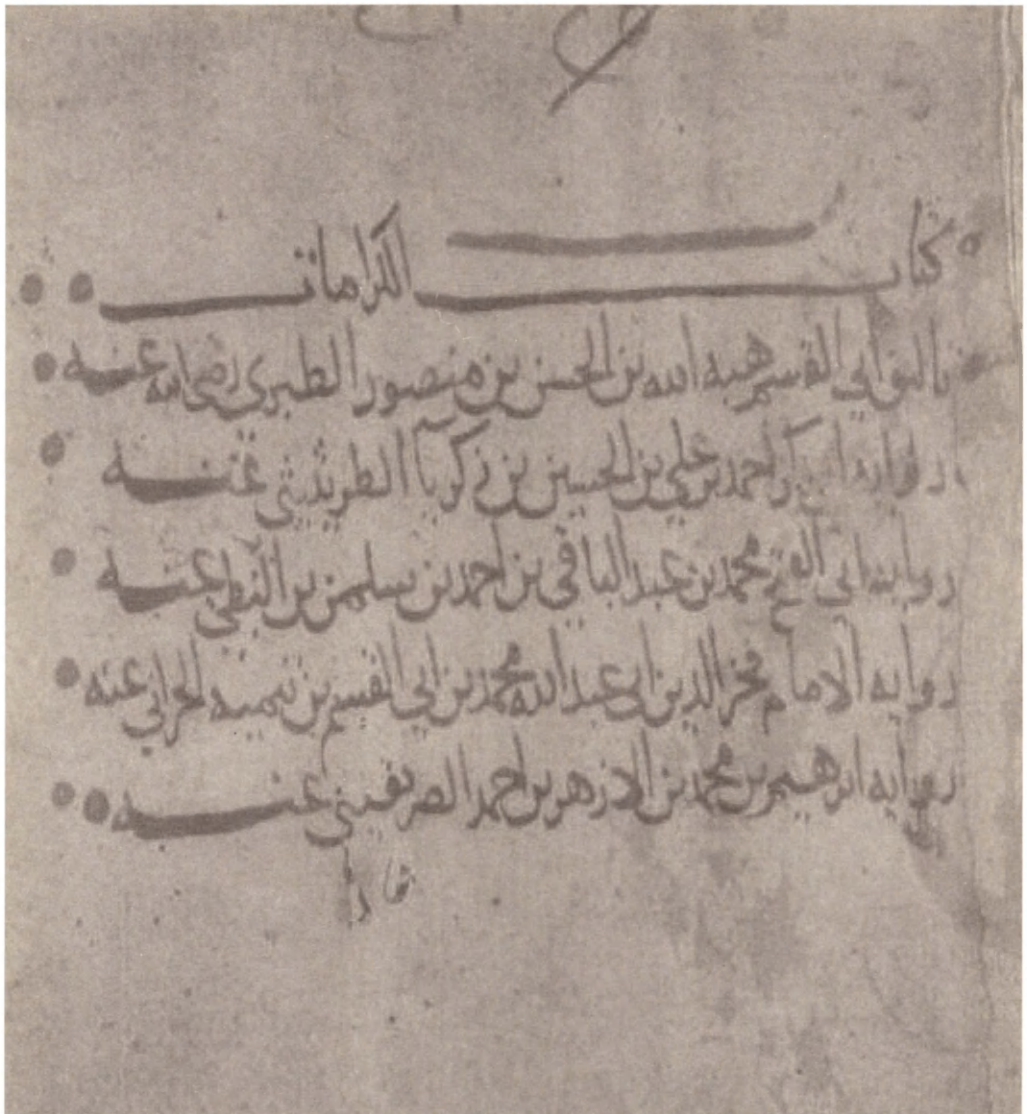 كتاب الكرامات
تاليف ابي القسم هبة الله بن الحسن بن منصور الطبري رضي الله عنه
رواية ابي بكر احمد بن علي بن الحسين بن زكريا الطريثيثي عنه
رواية ابي الفتح محمد بن عبد الباقي بن احمد بن سلمن بن البطي عنه
رواية الامام فخر الدين ابي عبد الله محمد بن ابي القسم بن تيمية الحراني عنه
رواية ابرهيم بن محمد بن الازهر بن احمد الصريفيني عنه